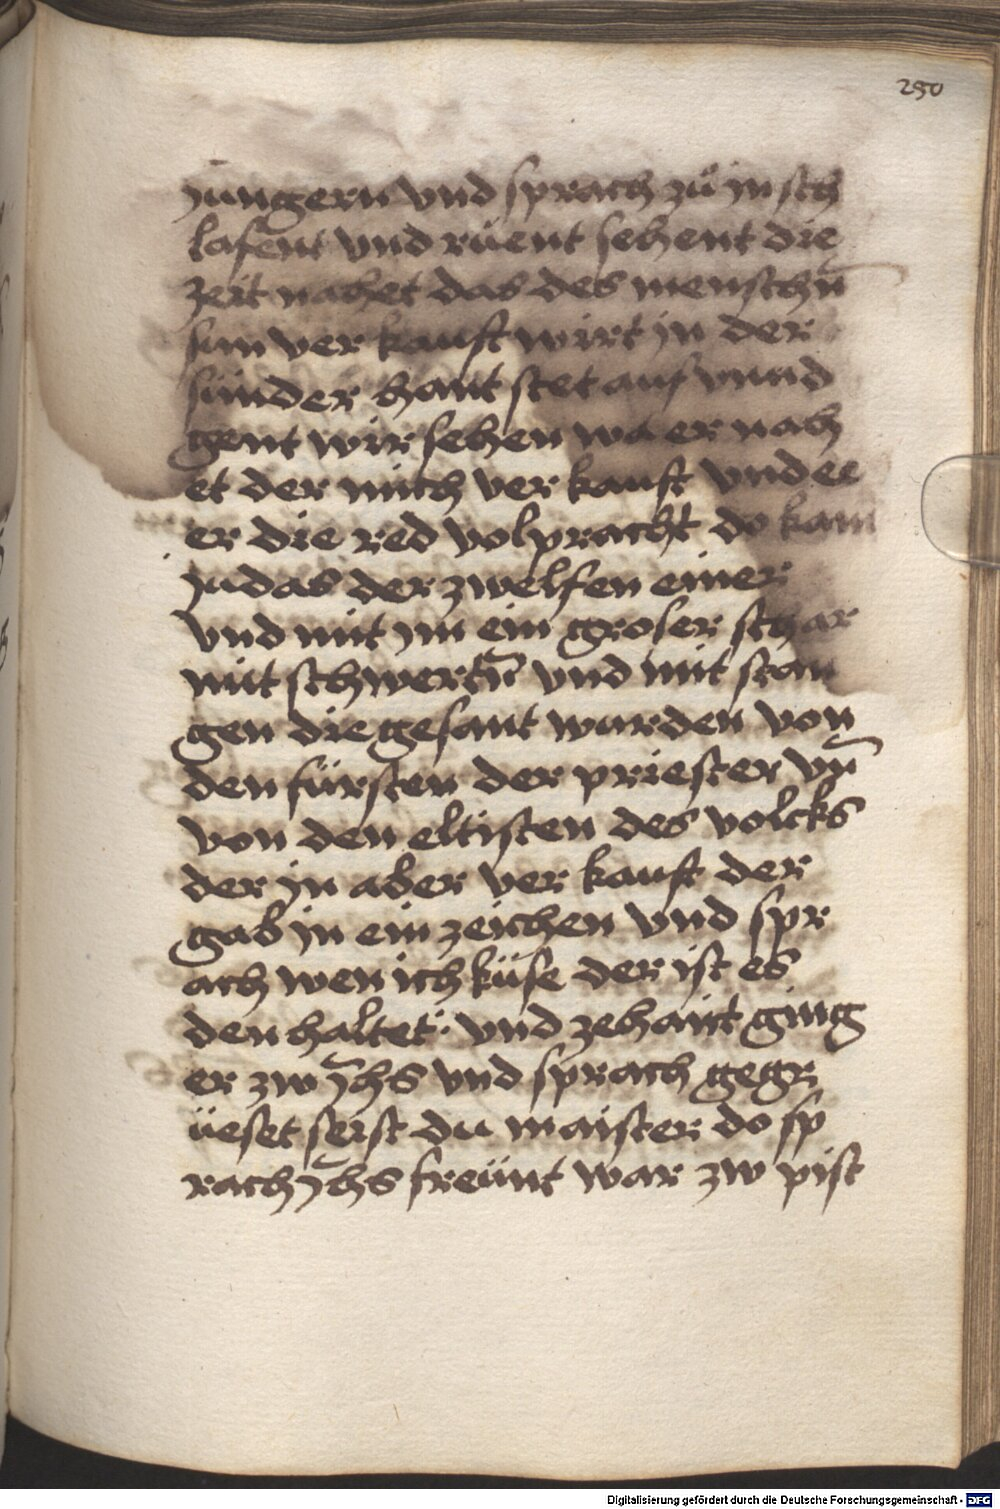 250
jungern vnd sprach zů jn sch
lafent vnd rüent sehent die
zeit nahet das des menschn̄
sun ver kauft wirt jn der
sünder hant stet auf vnnd
gent wir sehen wa er nah
et der mich ver kauft vnd ee
er die red volpracht do kam
judas der zwelfen einer
vnd mit jm ein groser schar
mit schwertn̄ vnd mit stan
gen die gesant wurden von
den fürsten der priester vn̄
von den eltisten des volcks
der jn aber ver kauft der
gab jn ein zeichen vnd spr
ach wen ich küse der ist es
den haltet : vnd zehant ging
er zw jh̄s vnd sprach gegr
üeset seist du maister do sp
rach jh̄s freünt war zw pist
Digitalisierung gefördert durch die Deutsche Forschungsgemeinschaft - DFG